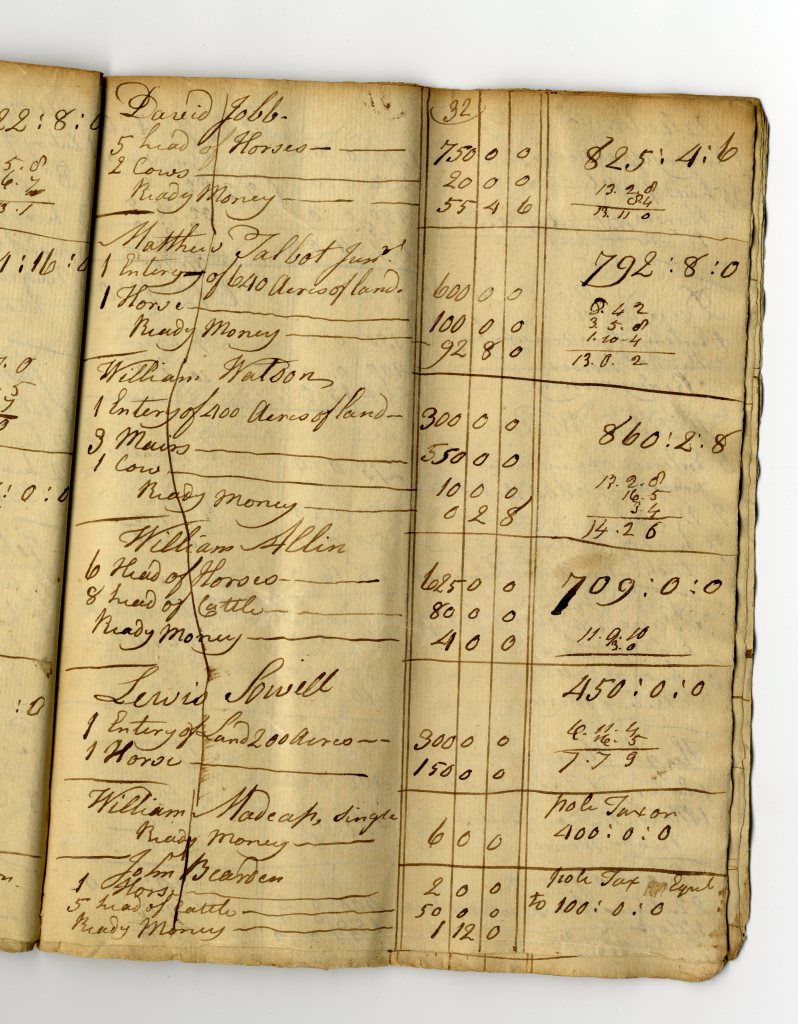 22 : 8 : 0
5. 8
1 : 16 : 0
: 0 : 0
: 0
32
David Jobb
5 head of Horses 750 0 0 825 : 4 : 6
2 Cows 20 0 0 13. 2. 8
Ready Money 55 4 6 8 4
13. 11 0
Matthew Talbot Junr. 792 : 8 : 0
1 Entery of 640 Acres of land. 600 0 0
1 Horse 100 0 0 3. 5. 8
Ready Money 92 8 0 1. 10. 4
13. 0. 2
William Watson
1 Entery of 400 Acres of land 300 0 0 860 : 2 : 8
3 Mairs 550 0 0
1 Cow 10 0 0 13. 2. 8
Ready Money 0 2 8 16. 5
3. 4
14. 2 6
William Allin
6 Head of Horses 625 0 0 709 : 0 : 0
8 head of Cattle 80 0 0
Ready Money 4 0 0 11. 9. 10
3. 0
Lewis Sowell 450 : 0 : 0
1 Entery of Land 200 Acres 300 0 0 16. 5
1 Horse 150 0 0 7. 7 9
William Madcap, single pole Tax on
Ready Money 6 0 0 400 : 0 : 0
John Bearden pole Tax Equl
1 Horse 2 0 0 to 100 : 0 : 0
5 head of Cattle 50 0 0
Ready Money 1 12 0